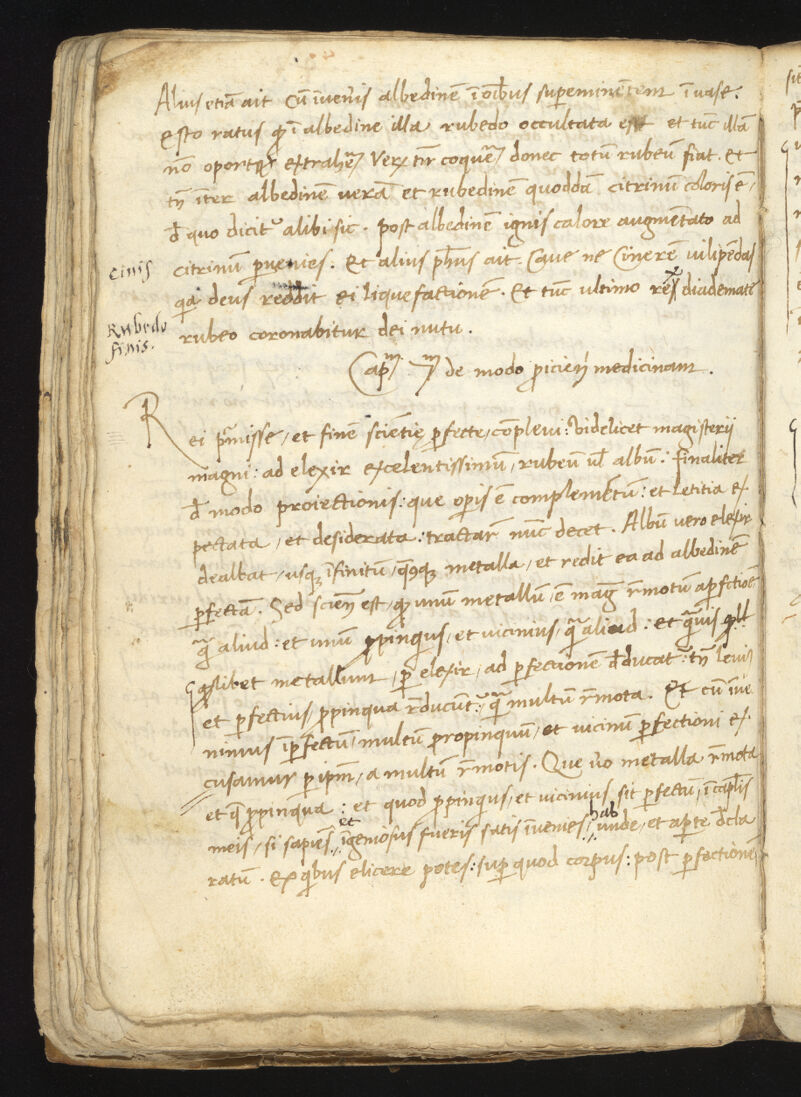 Alius etiā ait Cū īvenis albedinē ī oībus supereminētem ī vase:
esto ratus q̄ ī albedine illa rubedo occultata est et tūc illā
nō oportꝫ extrahē, Verꝫ tn̄ coquē, donec totū rubeū fiat. Et
tn̄ īter albedinē verā et rubedinē quoddā citrinū coloris ē,
đ quo dicitᷣ alibi sic. post albedinē ignis calore augmētato ad
citrinū pvenies. Et alius ph̄us ait. Cave ne Cinerē vilipēdas
cinis
qa deus reddit ei liquefactionē. Et tūc ultimo rex diademate
Rubedo finis.
rubeo coronabitur dei nutu.
Capᵐ 7ᵐ de modo ꝓiciēn medicinam.
Rei p̄misse, et finē sciētie ꝑfecte, cōplevi: Videlicet magisterii
magni: ad elexir excelentissimū, rubeū ul̄ albū. finaliter
đ modo proiectionis: que oꝑis ē complemētū: et letitia ex
pectata, et desiderata: tractar̄ nūc decet. Albū vero elexir
dealbat, usqꝫ īfinitū, q̄cūqꝫ metalla, et redit ea ad albedinē
ꝑfectā. Sed sciēn est, q̄ unū metallū, ē maḡ r̄motū a ꝑfctiōe
q̄ aliud: et unū ꝓpinqius, et vicinius, q̄ aliud: et q̄vis
qđlibet metallum, ꝑ elexir, ad ꝑfectionē đducat: tn̄ levius
et ꝑfectius, ꝓpinqua r̄ducūtᷣ: q̄ multū r̄mota. Et cū īve
nimus īꝑfectū, multū propinquū, et vicinū ꝑfectioni ex
cusamur ꝑ ipm̄, a multū r̄motis. Que v̄o metalla r̄mota
et q̄ ꝓpinqua: et quod ꝓpinqius, et vicinius sit ꝑfectū, ī capl̄is
meis, si sapiēs, et īgeniosus fueris satis īvenies, hab unde, et aꝑte đcla
ratū. Ex q̄bus elicere potes: suꝑ quod corpus: post ꝑfectionē